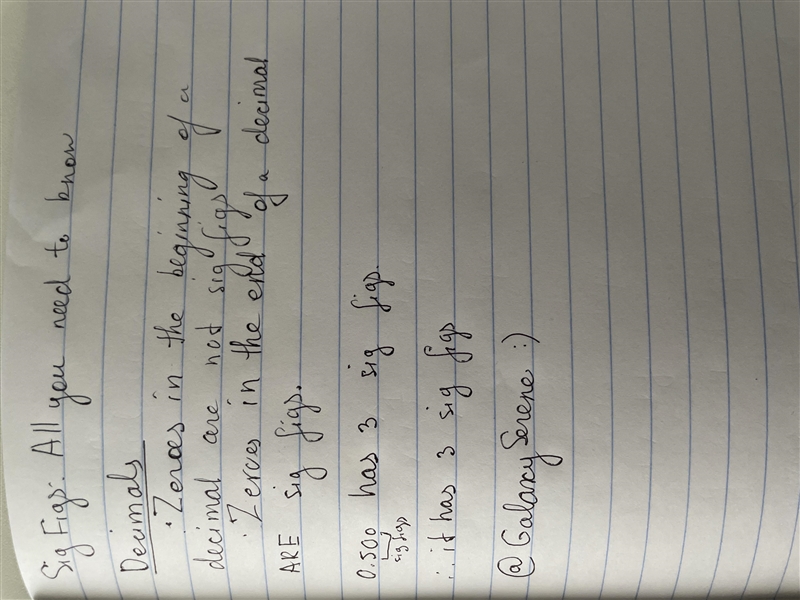 Sig Figs: All you need to know
Decimals
· Zeroes in the beginning of a
decimal are not sig figs
· Zeroes in the end of a decimal
ARE sig figs.
0.500 has 3 sig figs.
sig figs
∴ it has 3 sig figs
@GalaxySerene :)